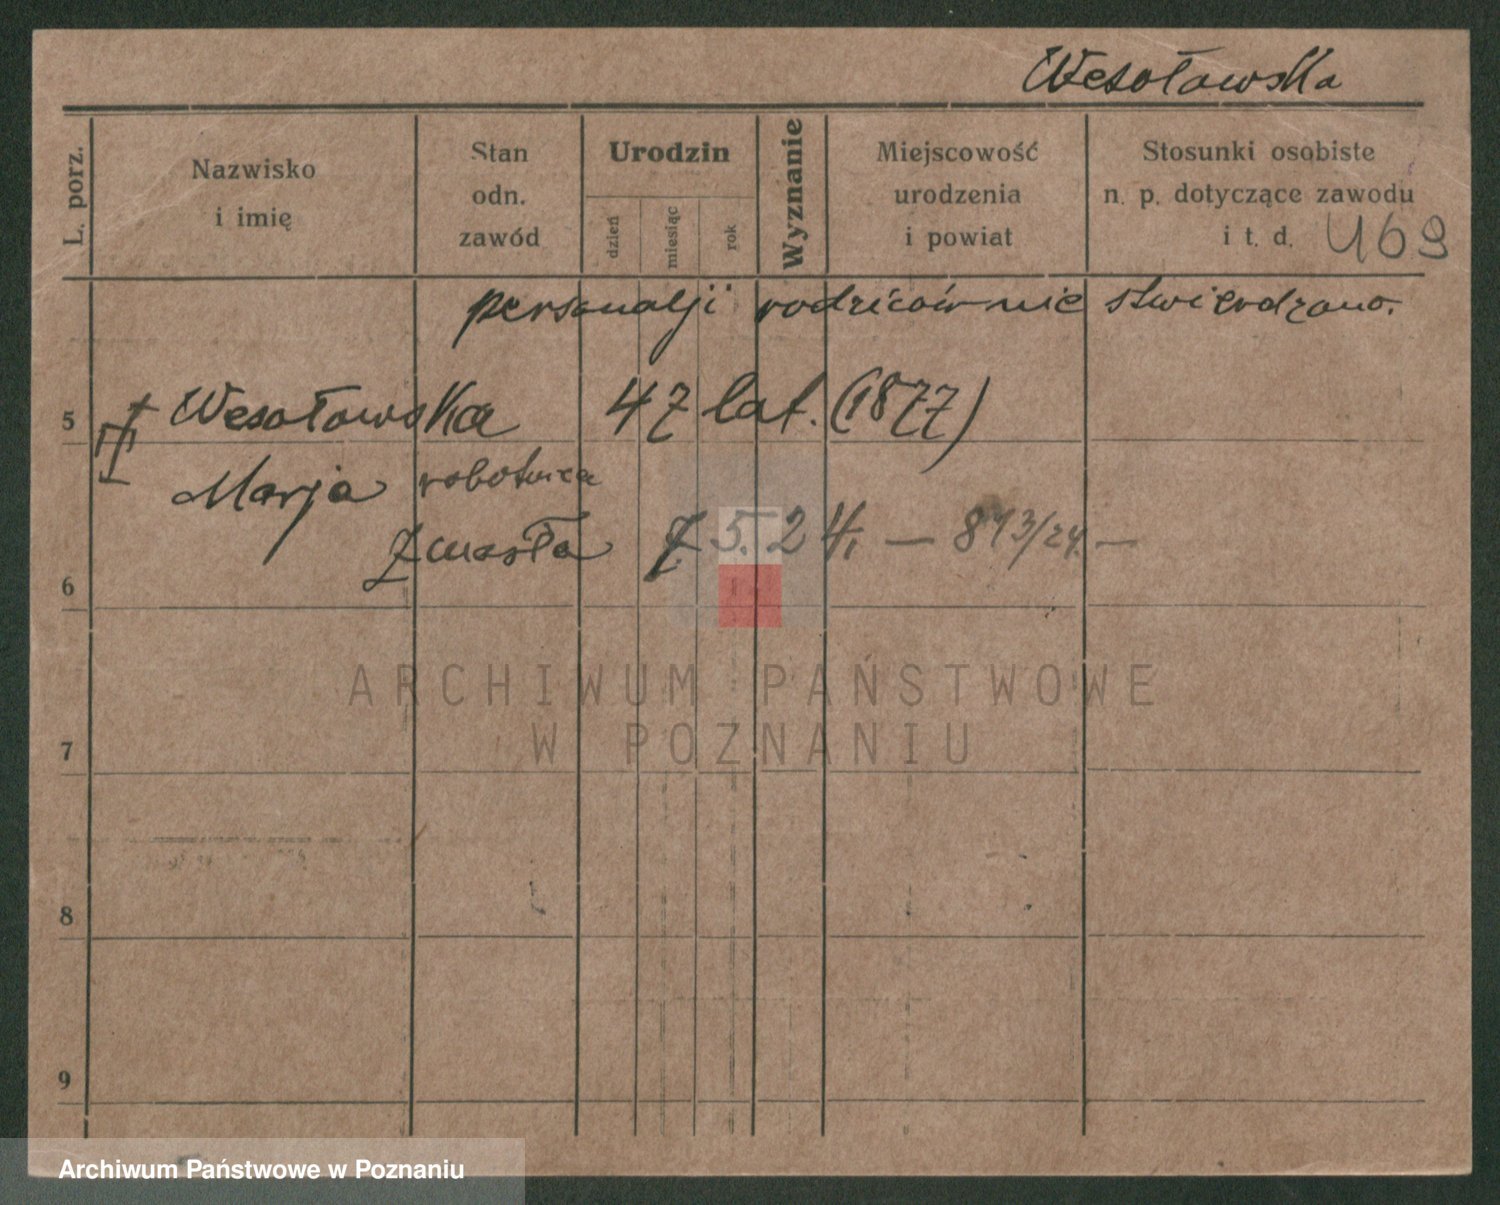 Wesołowska
L. porz.
Nazwisko
i imię
Stan
odn.
zawód
Urodzin
dzień
miesiąc
rok
Wyznanie
Miejscowość
urodzenia
i powiat
Stosunki osobiste
n. p. dotyczące zawodu
i t. d.
469
personalji rodziców nie stwierdzono.
5 Wesołowska 47 lat. (1877)
Marja robotnica
Zmarła 7. 5. 24. — 813/24. —
6
7
8
9
ARCHIWUM PAŃSTWOWE
W POZNANIU
Archiwum Państwowe w Poznaniu